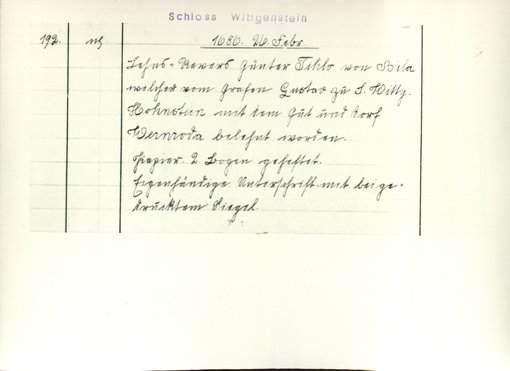 Schloss Wittgenstein
192. 1686. 26. Febr.
Lehns-Revers Günter Tihlo von Bila
welcher vom Grafen Gustav zu S. Wittg.
Hohnstein mit dem Gut und Dorf
Wernroda belehnt worden.
Papier. 2 Bogen geheftet.
Eigenhändige Unterschrift mit beige-
drücktem Siegel.